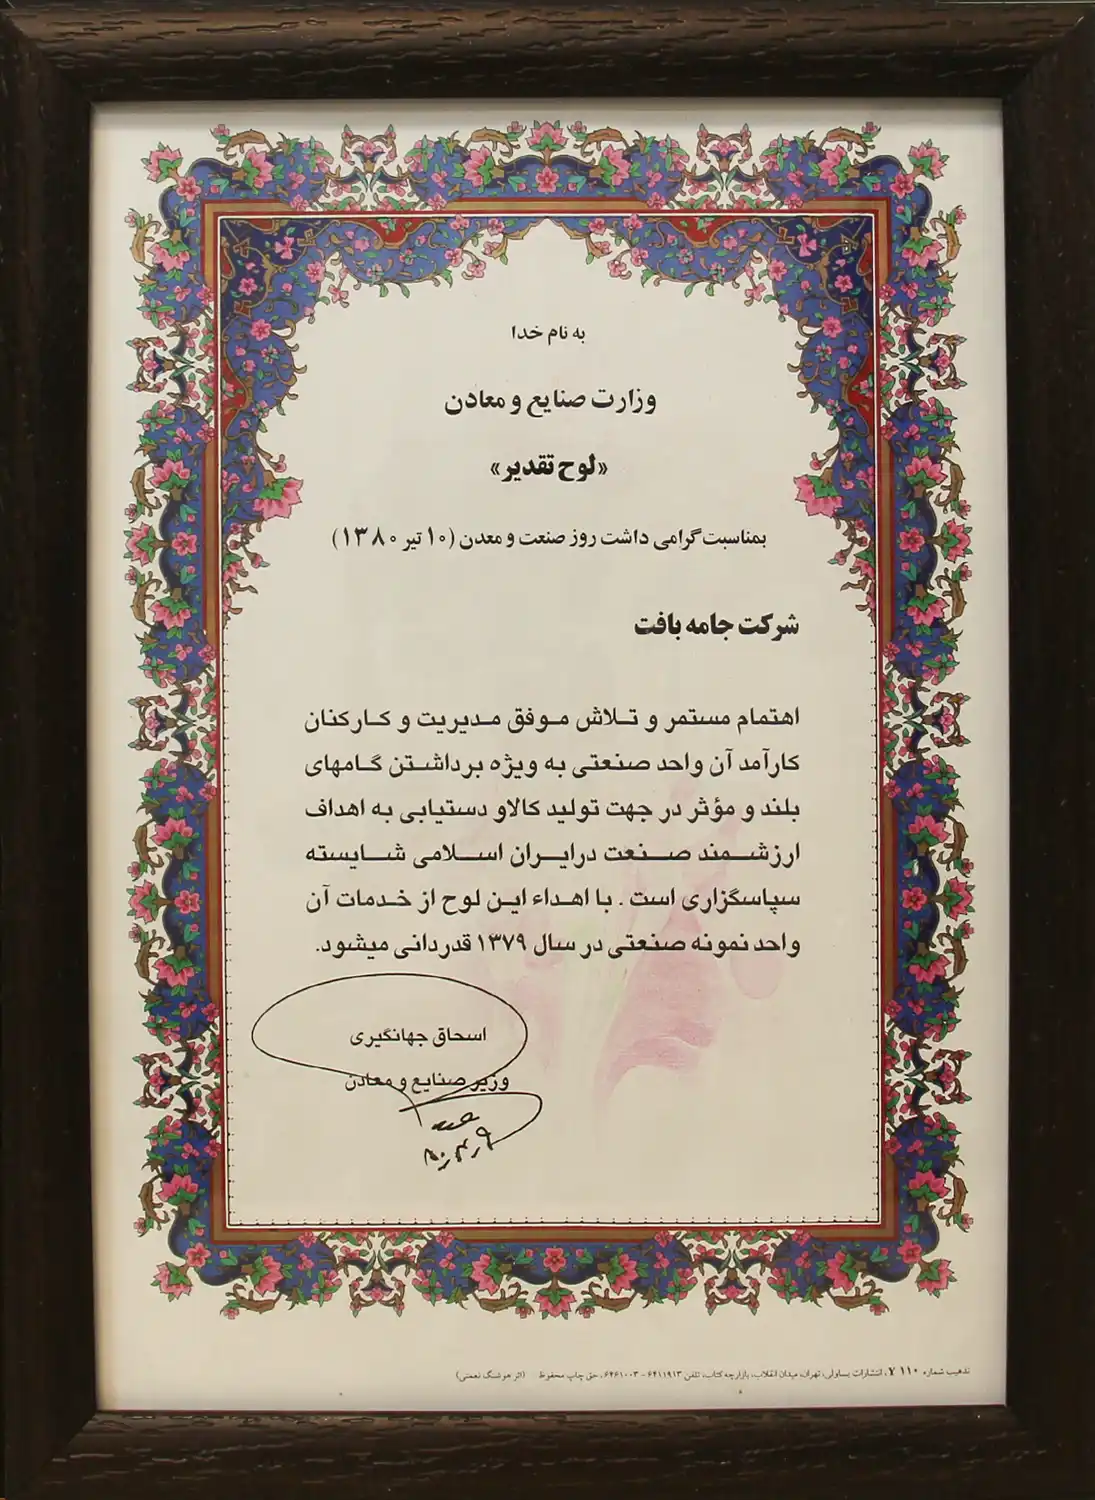 به نام خدا
وزارت صنایع و معادن
«لوح تقدیر»
بمناسبت گرامی داشت روز صنعت و معدن (۱۰ تیر ۱۳۸۰)
شرکت جامه بافت
اهتمام مستمر و تلاش موفق مدیریت و کارکنان
کارآمد آن واحد صنعتی به ویژه برداشتن گامهای
بلند و مؤثر در جهت تولید کالاو دستیابی به اهداف
ارزشمند صنعت درایران اسلامی شایسته
سپاسگزاری است . با اهداء این لوح از خدمات آن
واحد نمونه صنعتی در سال ۱۳۷۹ قدردانی میشود.
اسحاق جهانگیری
وزیر صنایع و معادن
تذهیب شماره ۱۱۰ ۷، انتشارات یساولی، تهران، میدان انقلاب، بازارچه کتاب، تلفن ۶۴۱۱۹۱۳ - ۶۴۶۱۰۰۳، حق چاپ محفوظ (اثر هوشنگ نعمتی)